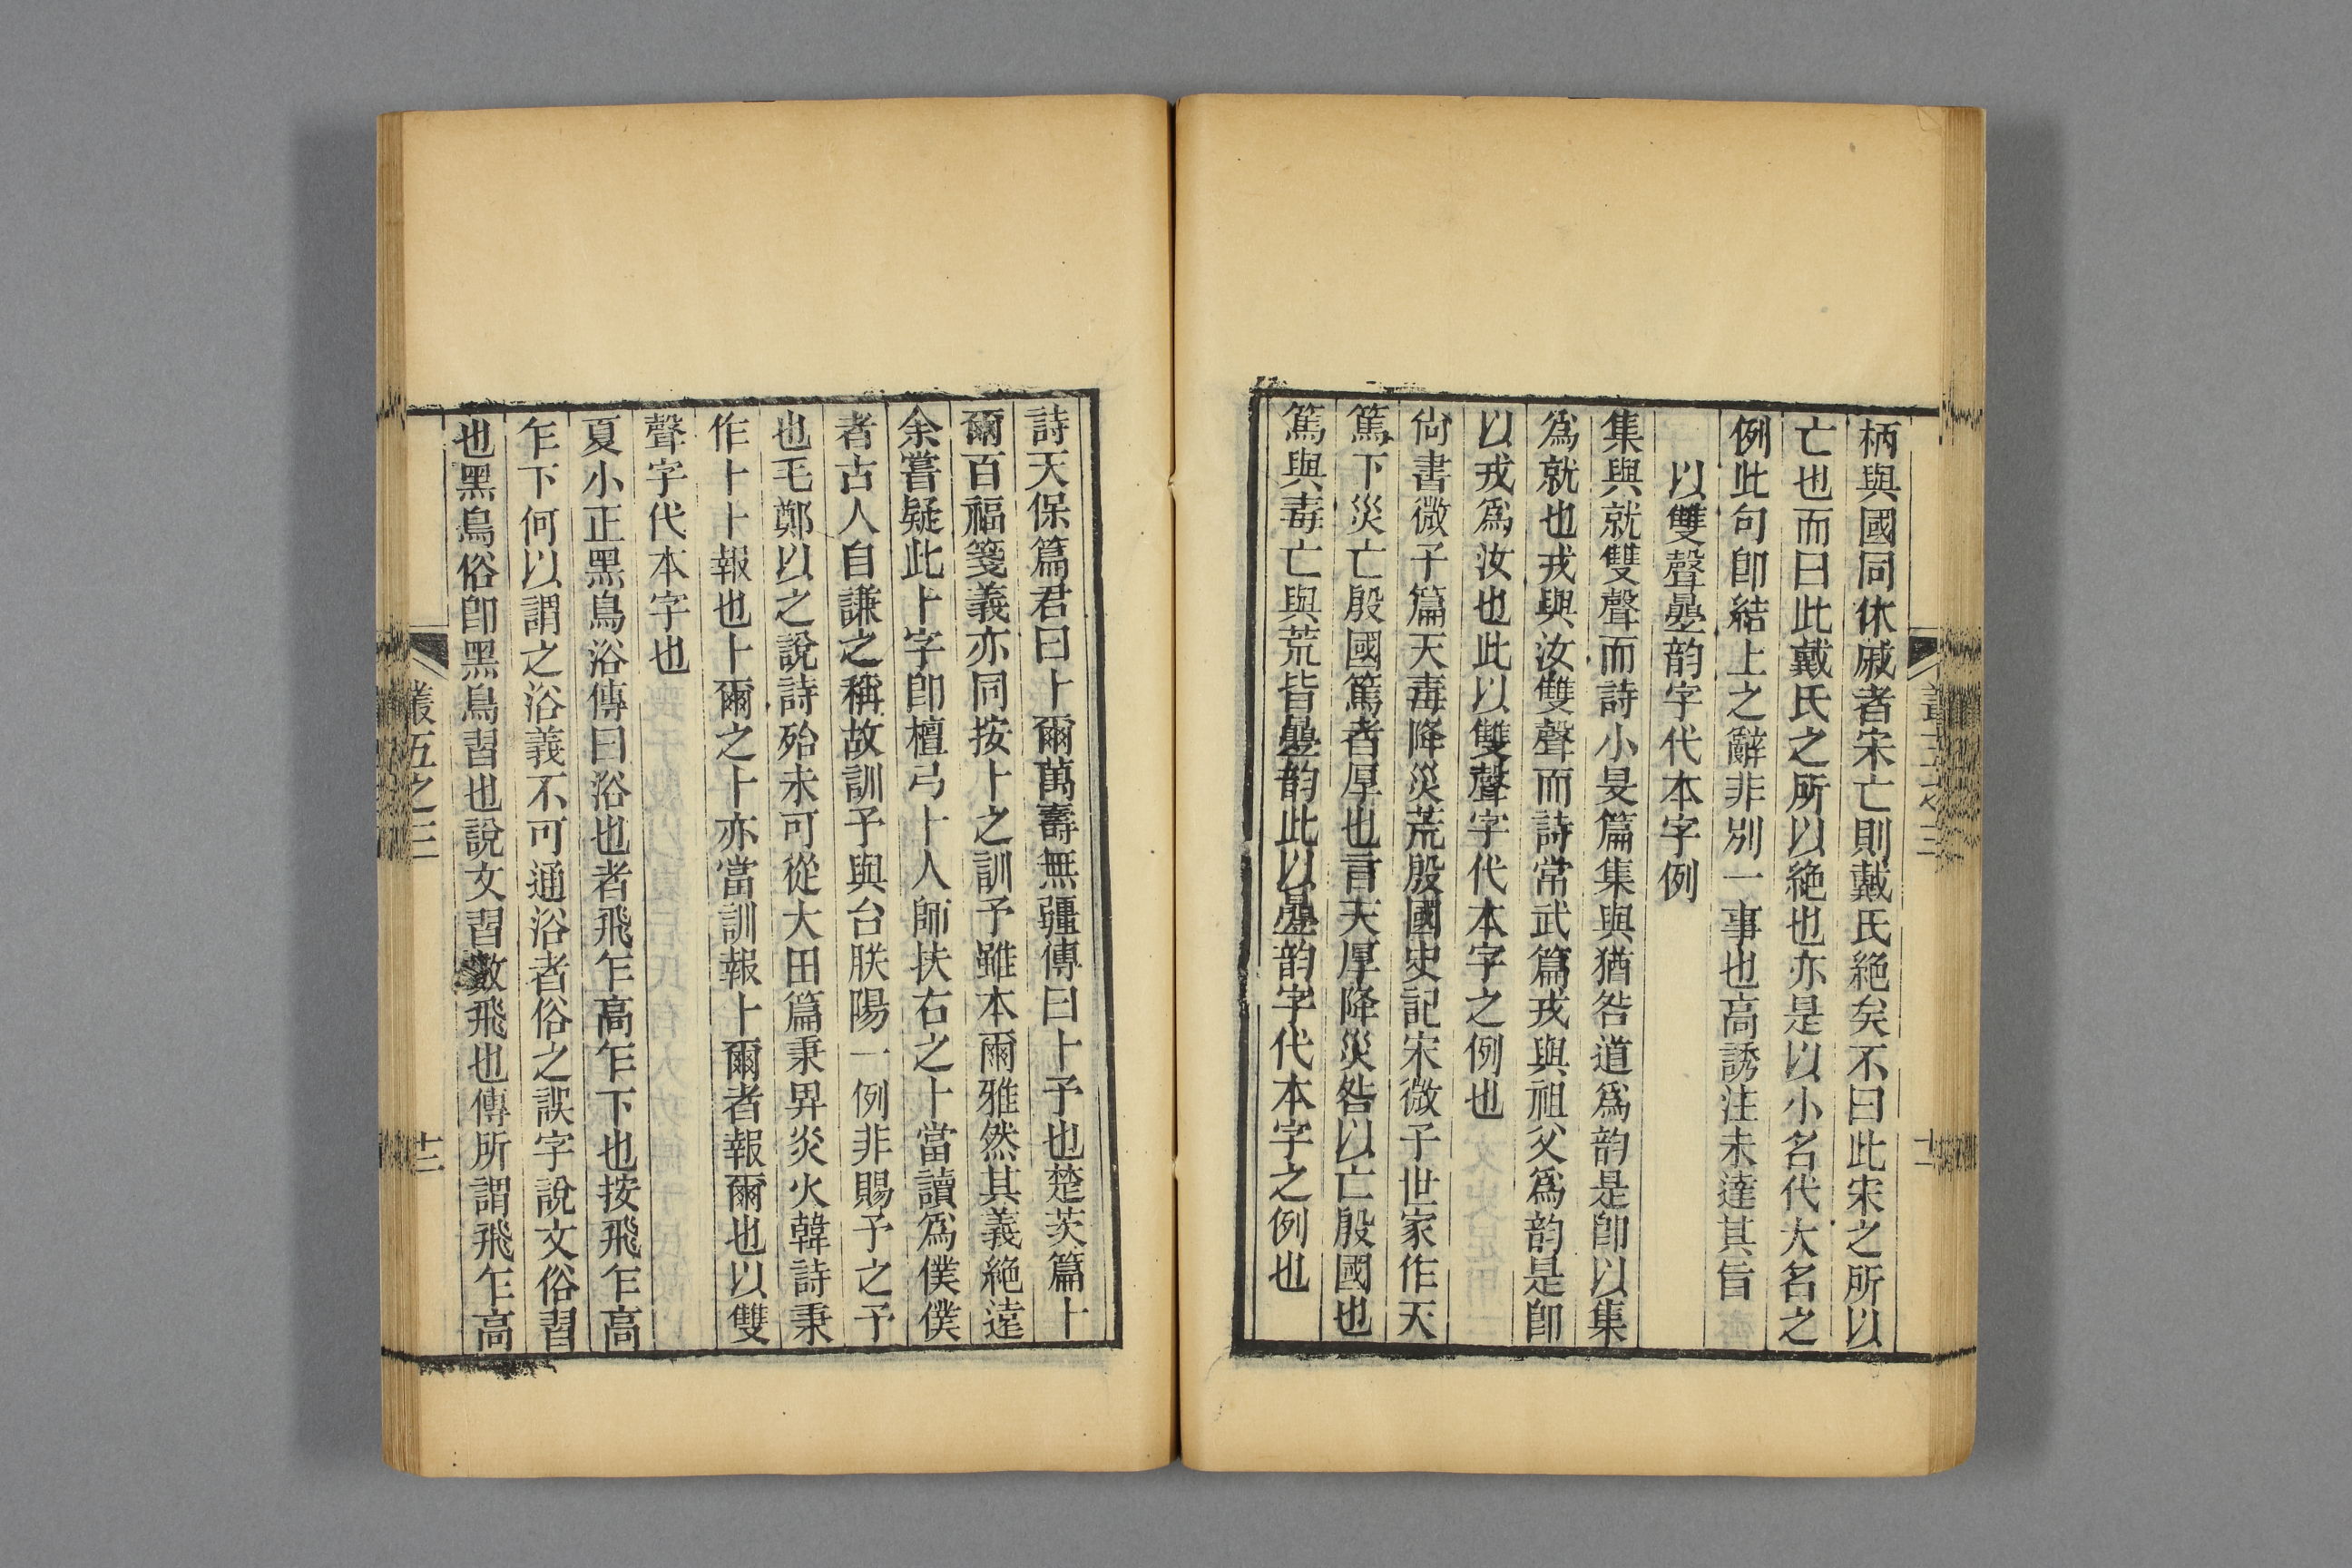 柄與國同休戚者宋亡則戴氏絕矣不曰此宋之所以
亡也而曰此戴氏之所以絕也亦是以小名代大名之
例此句卽結上之辭非別一事也高誘注未達其旨
以雙聲疊韵字代本字例
集與就雙聲而詩小旻篇集與猶咎道爲韵是卽以集
爲就也戎與汝雙聲而詩常武篇戎與祖父爲韵是卽
以戎爲汝也此以雙聲字代本字之例也
尙書微子篇天毒降災荒殷國史記宋微子世家作天
篤下災亡殷國篤者厚也言天厚降災咎以亡殷國也
篤與毒亡與荒皆疊韵此以疊韵字代本字之例也
詩天保篇君曰卜爾萬壽無疆傳曰卜予也楚茨篇卜
爾百福箋義亦同按卜之訓予雖本爾雅然其義絕遠
余嘗疑此卜字卽檀弓卜人師扶右之卜當讀爲僕僕
者古人自謙之稱故訓予與台朕陽一例非賜予之予
也毛鄭以之說詩殆未可從大田篇秉畀炎火韓詩秉
作卜卜報也卜爾之卜亦當訓報卜爾者報爾也以雙
聲字代本字也
夏小正黑鳥浴傳曰浴也者飛乍高乍下也按飛乍高
乍下何以謂之浴義不可通浴者俗之誤字說文俗習
也黑鳥俗卽黑鳥習也說文習數飛也傳所謂飛乍高
叢五之三
十二